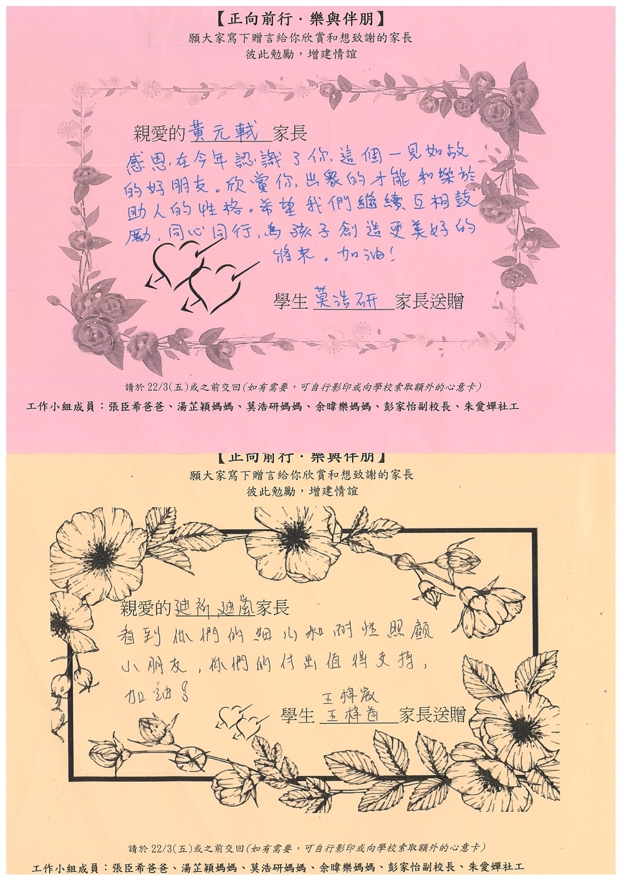 【正向前行．樂與伴朋】
願大家寫下贈言給你欣賞和想致謝的家長
彼此勉勵，增建情誼
親愛的 黃元軾 家長
感恩在今年認識了你，這個一見如故
的好朋友。欣賞你出眾的才能和樂於
助人的性格。希望我們繼續互相鼓
勵，同心同行，為孩子創造更美好的
將來。加油！
學生 莫浩研 家長送贈
請於 22/3(五)或之前交回(如有需要，可自行影印或向學校索取額外的心意卡)
工作小組成員：張臣希爸爸、湯芷穎媽媽、莫浩研媽媽、余暐樂媽媽、彭家怡副校長、朱愛嬋社工
【正向前行．樂與伴朋】
願大家寫下贈言給你欣賞和想致謝的家長
彼此勉勵，增建情誼
親愛的 家長
看到你們的細心和耐性照顧
小朋友，你們的付出值得支持，
加油
學生 家長送贈
請於 22/3(五)或之前交回(如有需要，可自行影印或向學校索取額外的心意卡)
工作小組成員：張臣希爸爸、湯芷穎媽媽、莫浩研媽媽、余暐樂媽媽、彭家怡副校長、朱愛嬋社工